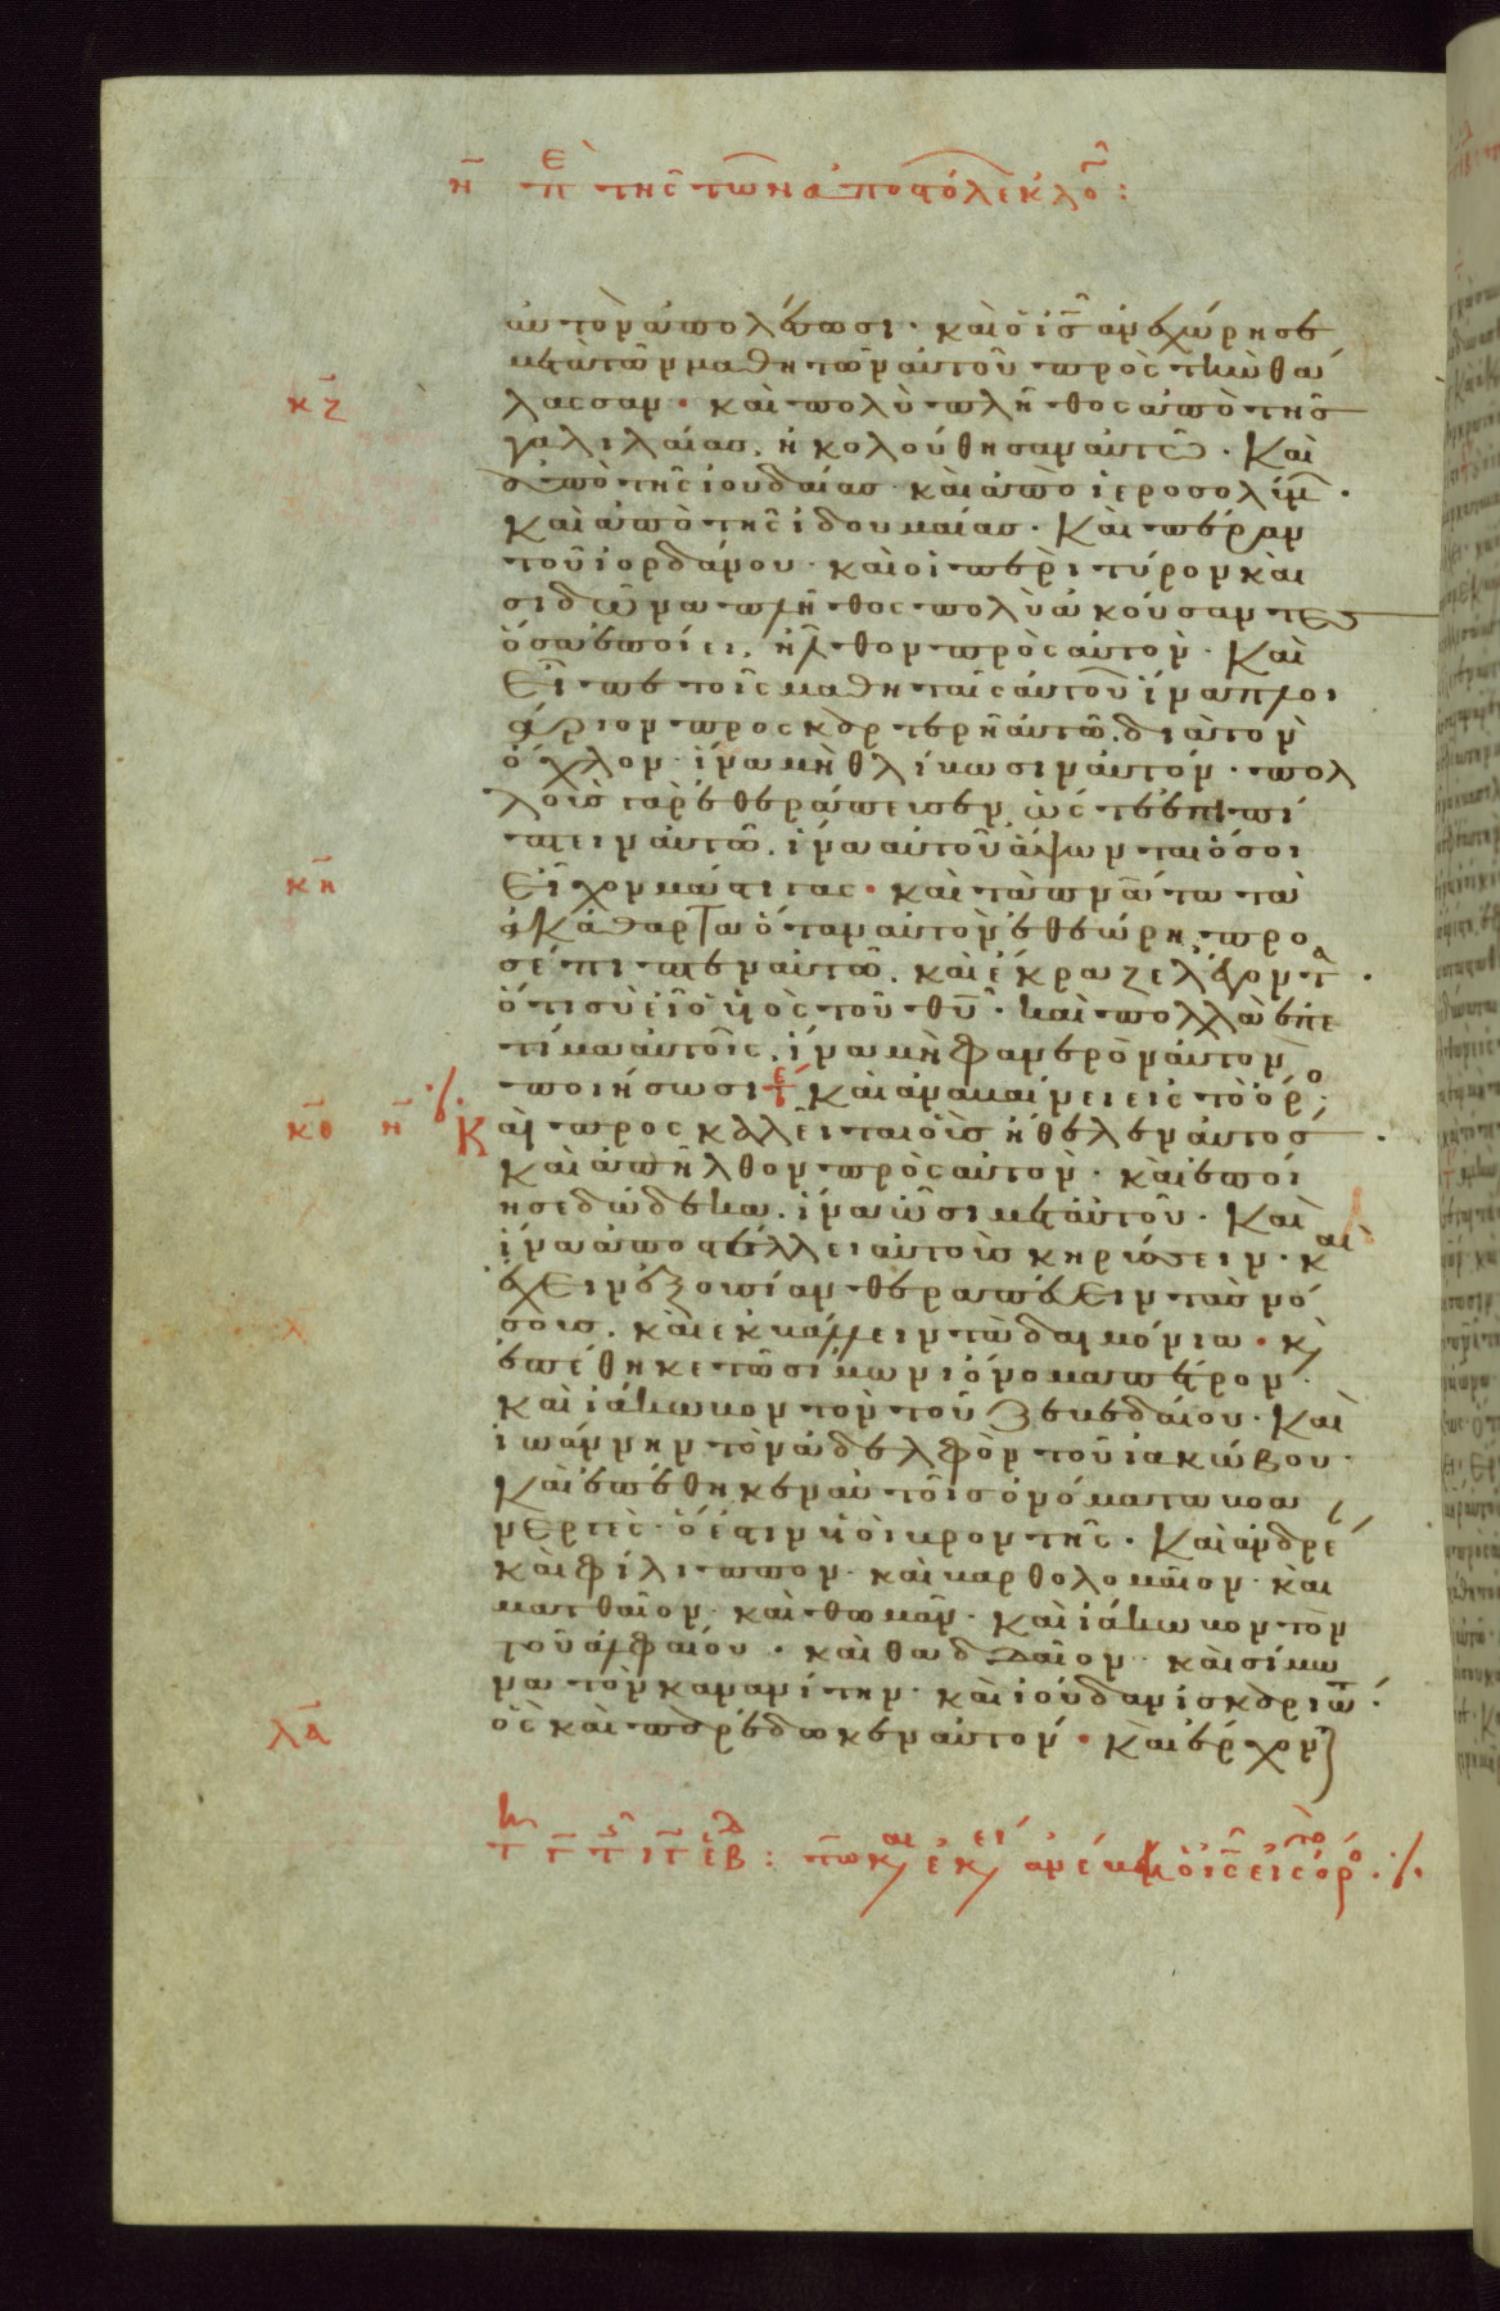 η̄ πὲ τῆς τῶν ἀποστόλ εκλο :
αὐτὸν ἀπολέσωσι · καὶ ὁ ις̄ ἀνεχώρησε
μετὰ τῶν μαθητῶν αὐτοῦ πρὸς τὴν θά
κζ λασσαν · καὶ πολὺ πλῆθος ἀπὸ τῆς
γαλιλαίας, ἠκολούθησαν αὐτῶ · Καὶ
ἀπὸ τῆς ἰουδαίας καὶ ἀπὸ ἱεροσολύμ ·
Καὶ ἀπὸ τῆς ἰδουμαίας · Καὶ πέραν
τοῦ ἰορδάνου · καὶ οἱ περὶ τύρον καὶ
σιδῶνα πλῆθος πολὺ ἀκούσαντες
ὅσα ἐποίει, ἦλθον πρὸς αὐτὸν · Καὶ
Εἶπε τοῖς μαθηταῖς αὐτοῦ ἵνα πλοι
άριον προσκαρτερῆ αὐτῶ. διὰ τὸν
ὄχλον · ἵνα μὴ θλίβωσιν αὐτόν · πολ
λοὺς γὰρ ἐθεράπευσεν, ὥστε ἐπιπί
πτειν αὐτῶ. ἵνα αὐτοῦ ἅψωνται ὅσοι
κη Εἶχον μάστιγας · καὶ τὰ πνᾱτα τὰ
ἀκάθαρτα ὅταν αὐτὸν ἐθεώρη, προ
σέπιπτεν αὐτῶ. καὶ ἔκραζε λέγοντα ·
ὅτι σὺ εἶ ὁ υἱὸς τοῦ θῡ · καὶ πολλὰ ἐπε
τίμα αὐτοῖς, ἵνα μὴ φανερὸν αὐτὸν
ποιήσωσι τε καὶ ἀναβαίνει εἰς τὸ ὄρο,
κθ η Καὶ προσκαλεῖται οὓς ἤθελεν αὐτος ·
Καὶ ἀπῆλθον πρὸς αὐτὸν · καὶ ἐποί
ησε δώδεκα. ἵνα ὦσι μετ αὐτοῦ · Καὶ
ἵνα ἀποστέλλει αὐτοὺς κηρύσσειν · καὶ
ἔχειν ἐξουσίαν θεραπεύειν τὰς νό
σους. καὶ ἐκβάλλειν τὰ δαιμόνια · κ
ἐπέθηκε τῶ σίμωνι ὄνομα πέτρον ·
καὶ ἰάκωβον τὸν τοῦ ζεβεδαίου · Καὶ
ἰωάννην τὸν ἀδελφὸν τοῦ ἰακώβου ·
Καὶ ἐπέθηκεν αὐτοῖς ὀνόματα βοα
νεργες · ὅ ἐστιν υἱοὶ βροντῆς · Καὶ ἀνδρέ
καὶ φίλιππον · καὶ βαρθολομαῖον · καὶ
ματθαῖον · καὶ θωμᾶν · καὶ ἰάκωβον τὸν
τοῦ ἀλφαίου · καὶ θαδδαῖον · καὶ σίμω
να τὸν κανανίτην · καὶ ἰούδαν ἰσκαριώτ ·
λα ὃς καὶ παρέδωκεν αὐτόν · Καὶ ἔρχον
τῶ κ ἐκ ἀνέβη ὁ ις̄ εἰς τὸ ὄρο